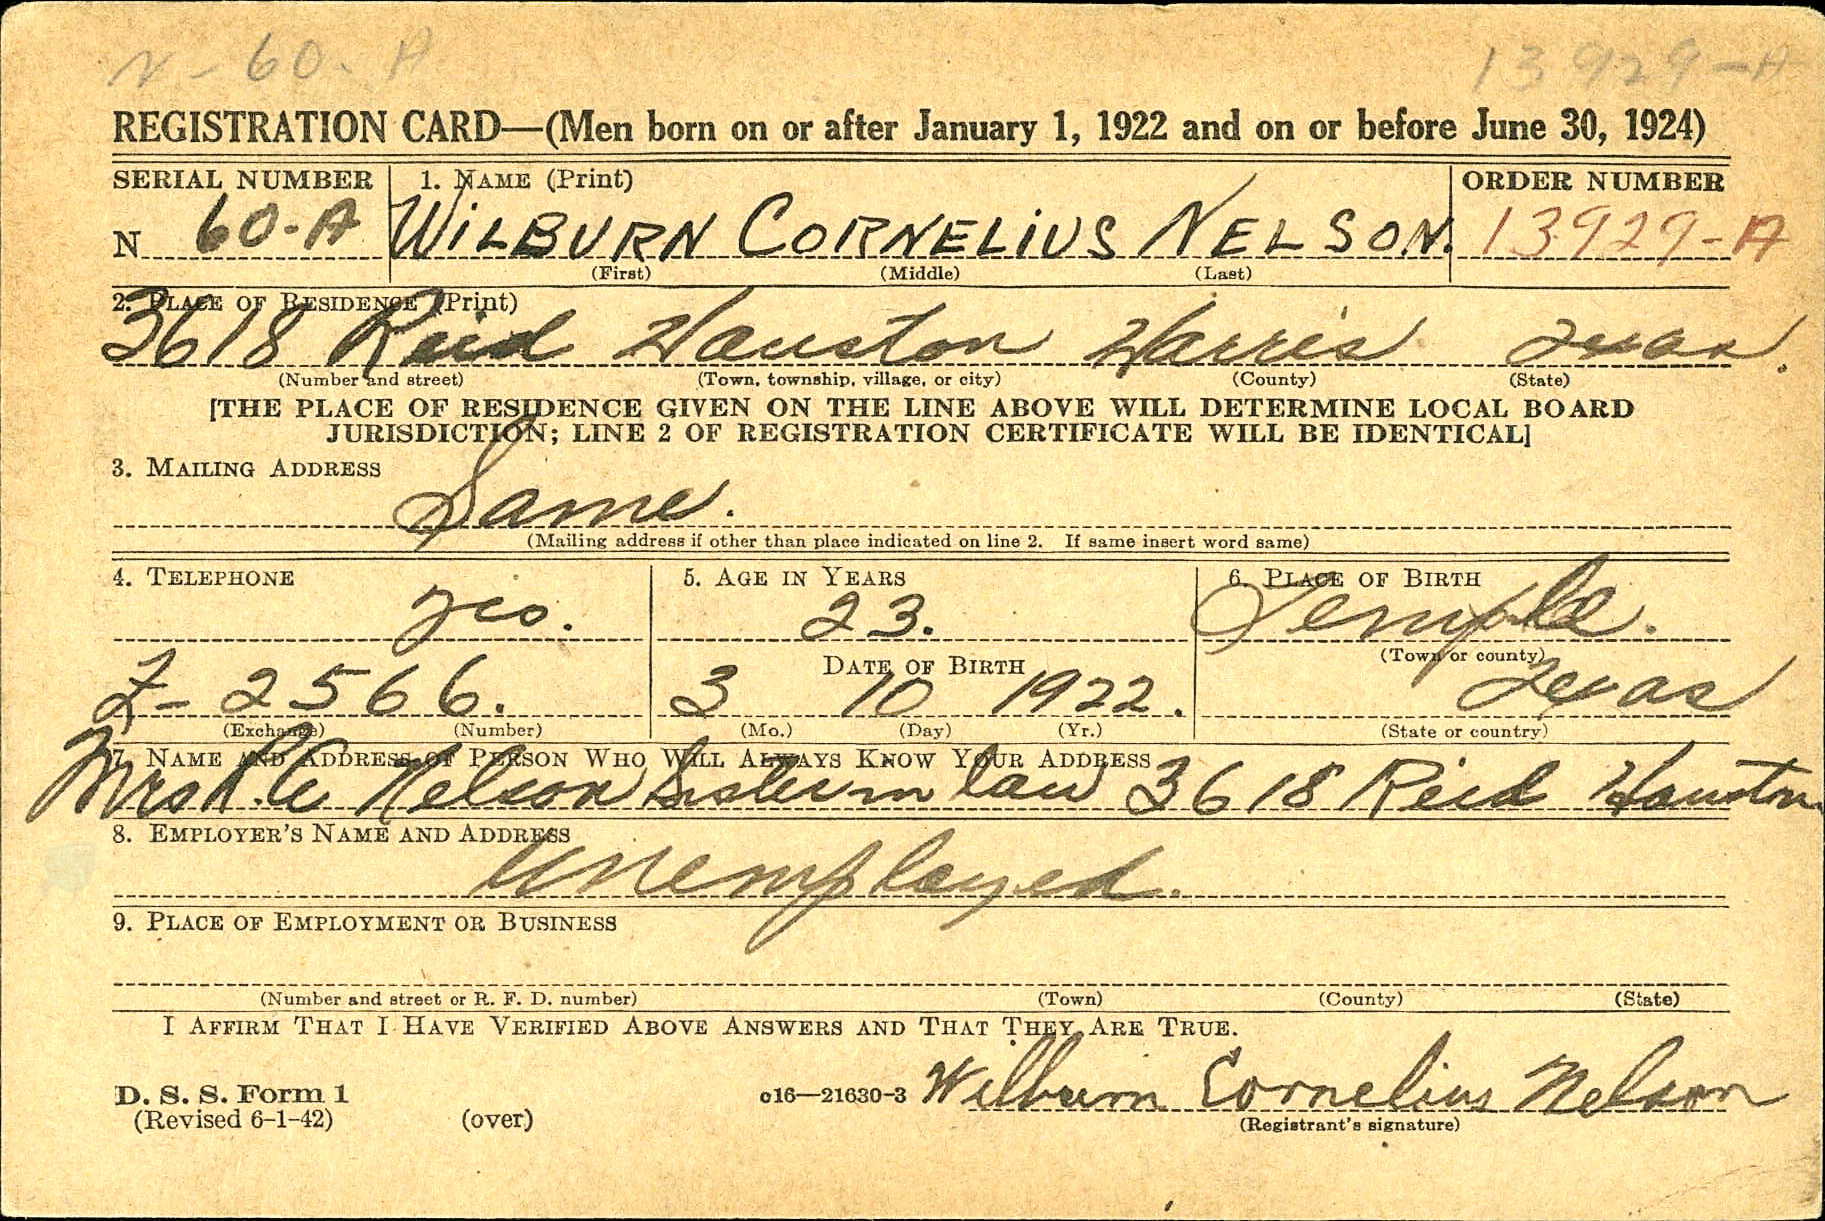 N-60-A 13929-A
REGISTRATION CARD—(Men born on or after January 1, 1922 and on or before June 30, 1924)
SERIAL NUMBER 1. NAME (Print) ORDER NUMBER
N 60-A WILBURN CORNELIUS NELSON. 13929-A
(First) (Middle) (Last)
2. PLACE OF RESIDENCE (Print)
3618 Reid Houston Harris Texas.
(Number and street) (Town, township, village, or city) (County) (State)
[THE PLACE OF RESIDENCE GIVEN ON THE LINE ABOVE WILL DETERMINE LOCAL BOARD
JURISDICTION; LINE 2 OF REGISTRATION CERTIFICATE WILL BE IDENTICAL]
3. MAILING ADDRESS
Same.
(Mailing address if other than place indicated on line 2. If same insert word same)
4. TELEPHONE 5. AGE IN YEARS 6. PLACE OF BIRTH
yes. 23. Temple.
DATE OF BIRTH (Town or county)
2566. 3 10 1922. Texas
(Exchange) (Number) (Mo.) (Day) (Yr.) (State or country)
7. NAME AND ADDRESS OF PERSON WHO WILL ALWAYS KNOW YOUR ADDRESS
Mrs Nelson Sister in law 3618 Reid Houston
8. EMPLOYER'S NAME AND ADDRESS
Unemployed.
9. PLACE OF EMPLOYMENT OR BUSINESS
(Number and street or R. F. D. number) (Town) (County) (State)
I AFFIRM THAT I HAVE VERIFIED ABOVE ANSWERS AND THAT THEY ARE TRUE.
D. S. S. Form 1 c16—21630-3 Wilburn Cornelius Nelson
(Revised 6-1-42) (over) (Registrant's signature)